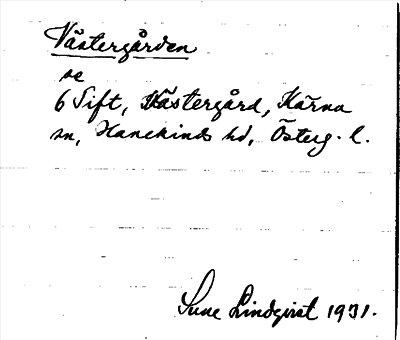 Västergården
se
6 Sift, Västergård, Kärna
sn, Hanekinds hd, Österg. l.
Sune Lindqvist 1931.